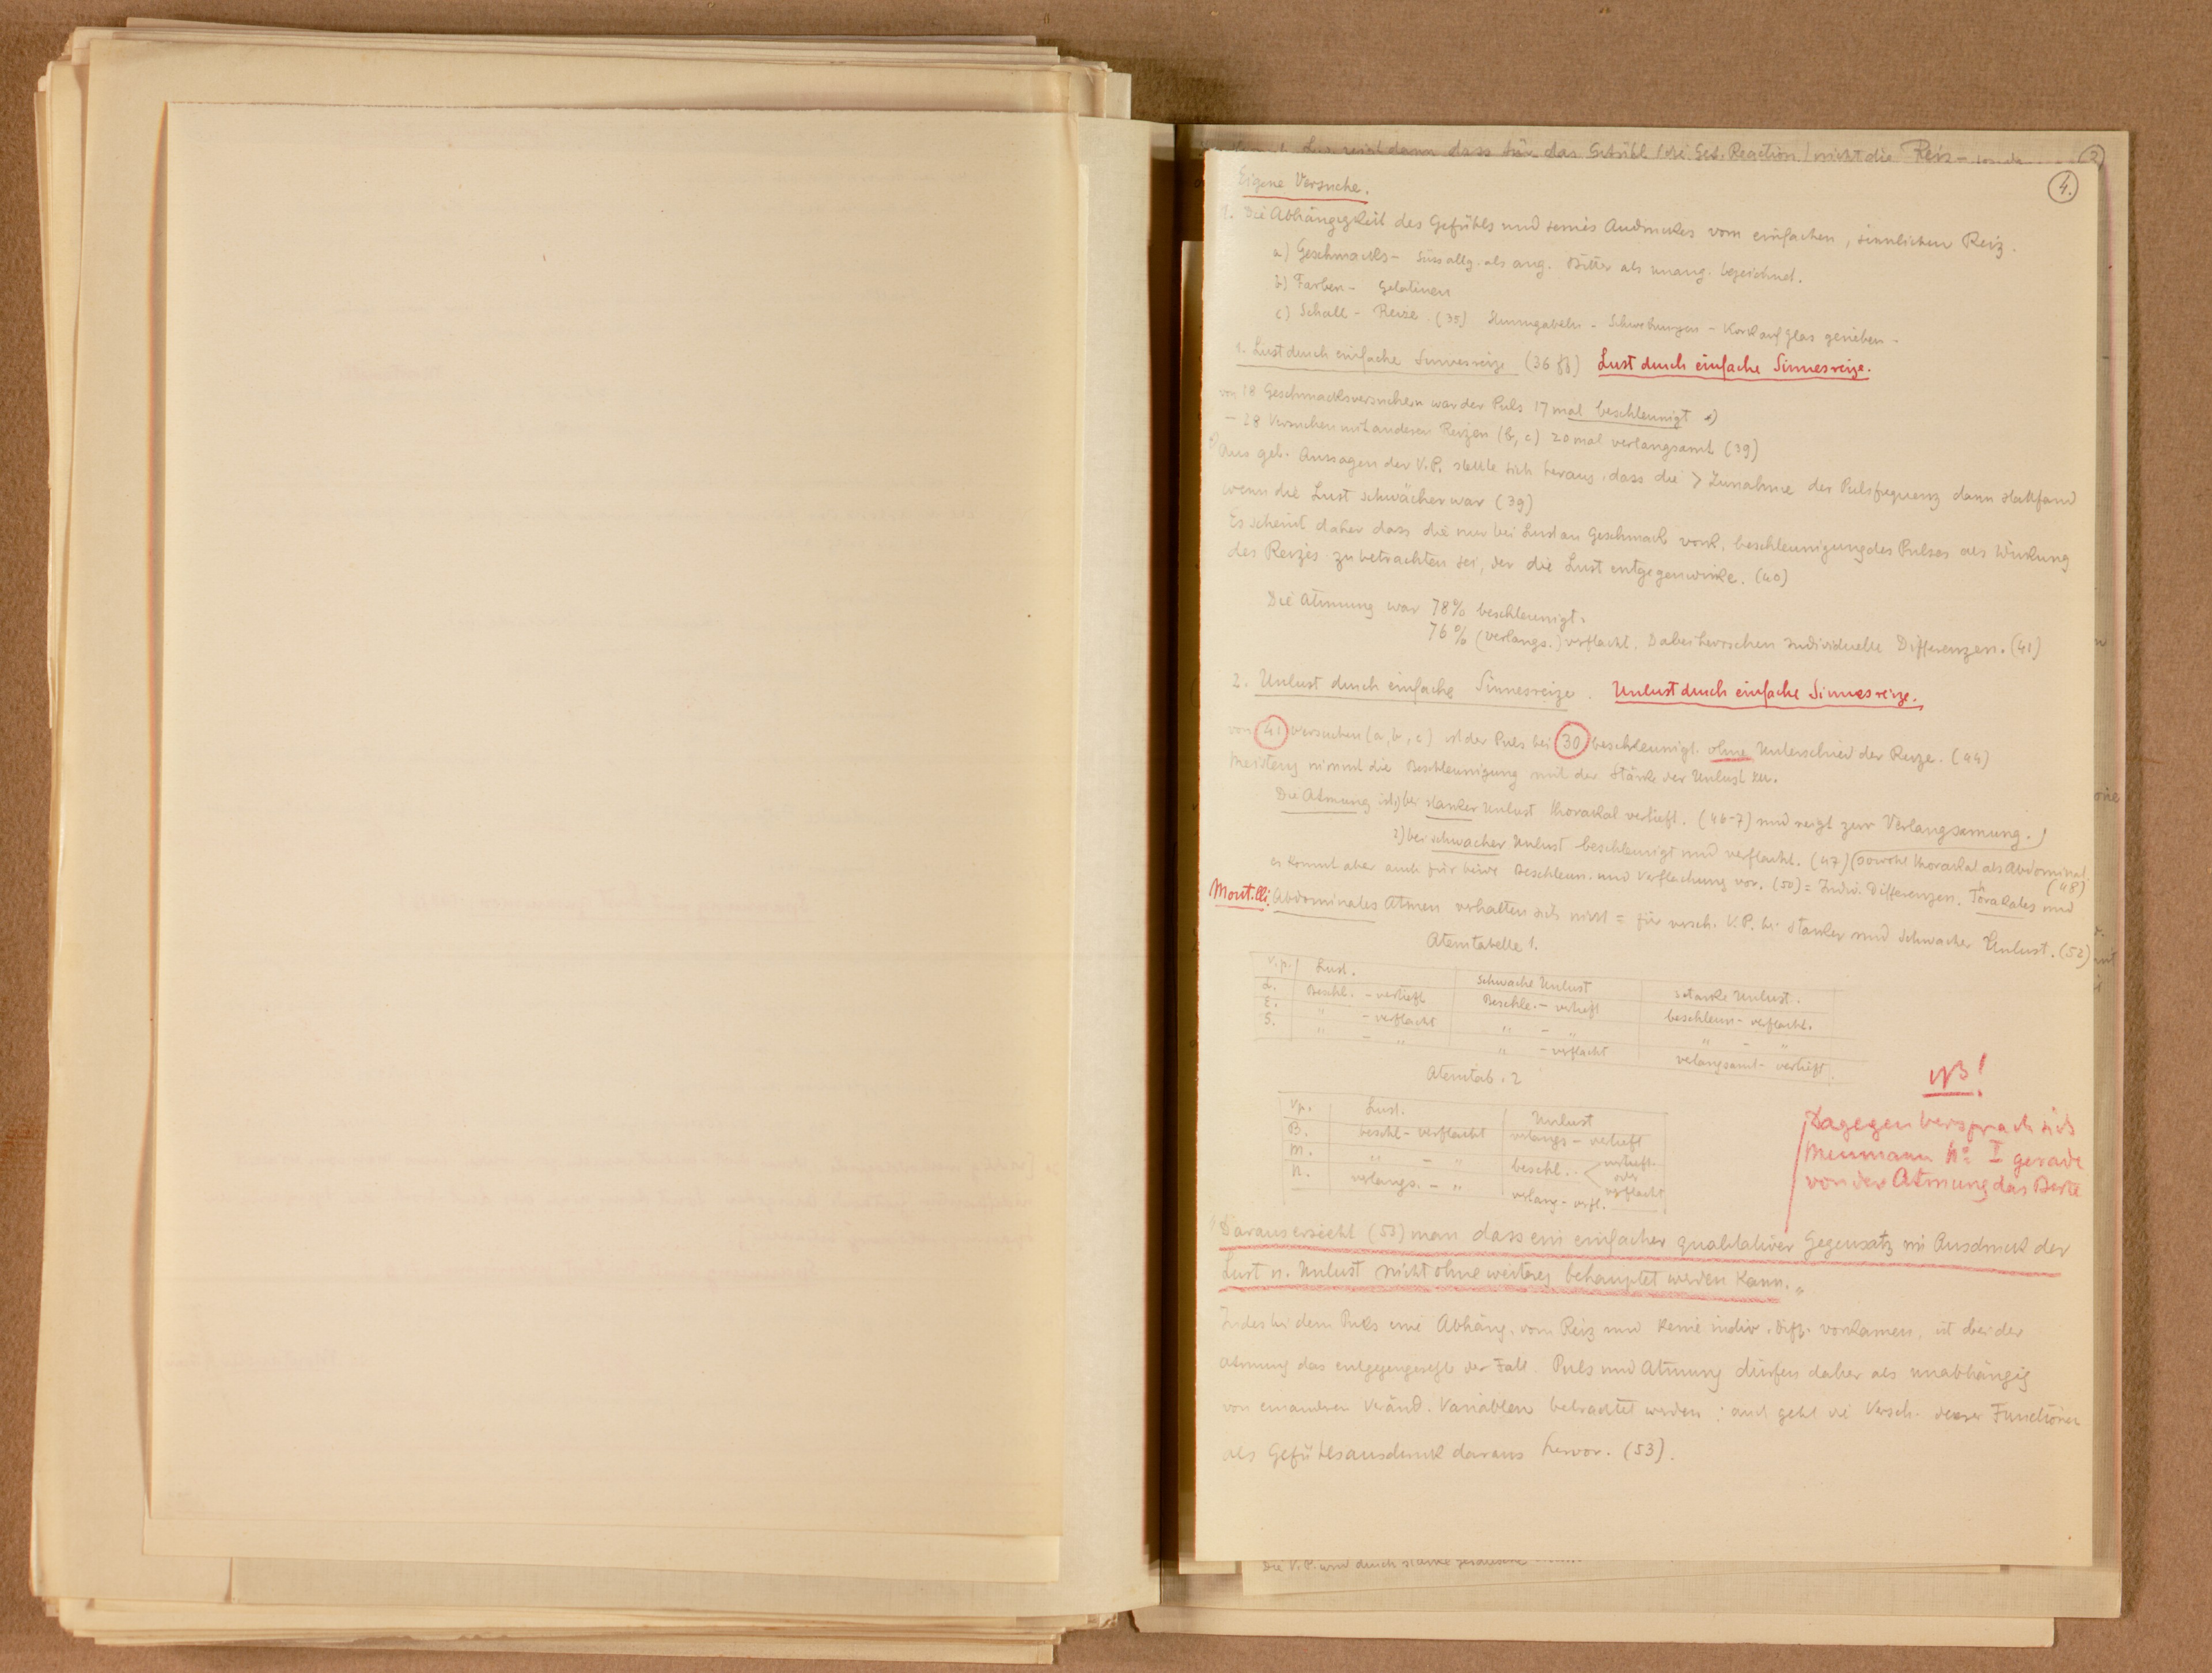 dann dass für das Gefühl (die Gef. Reaction) nicht die Reiz-
2
4.
Eigene Versuche.
1. Die Abhängigkeit des Gefühls und seines Ausdruckes vom einfachen, sinnlichen Reiz.
a) Geschmacks- Süss allg. als ang. Bitter als unang. bezeichnet.
b) Farben- Gelatinen
c) Schall- Reize. (35) Stimmgabeln - Schwebungen - Kork auf Glas gerieben -
1. Lust durch einfache Sinnesreize (36 ff) Lust durch einfache Sinnesreize.
von 18 Geschmacksversuchen war der Puls 17 mal beschleunigt
- 28 Versuchen mit anderen Reizen (b, c) 20 mal verlangsamt (39)
Aus geb. Aussagen der V.P. stellte sich heraus, dass die > Zunahme der Pulsfrequenz dann stattfand
wenn die Lust schwächer war (39)
Es scheint daher dass die nur bei Lust an Geschmack vork. beschleunigung des Pulses als Wirkung
des Reizes zu betrachten sei, der die Lust entgegenwirke. (40)
Die Atmung war 78% beschleunigt.
76% (verlangs.) verflacht. Dabei herrschen individuelle Differenzen. (41)
2. Unlust durch einfache Sinnesreize. Unlust durch einfache Sinnesreize.
von 41 Versuchen (a, b, c) ist der Puls bei 30 beschleunigt ohne Unterschied der Reize. (44)
Meistens nimmt die Beschleunigung mit der Stärke der Unlust zu.
Die Atmung ist 1) bei starker Unlust thorakal vertieft. (46-7) und neigt zur Verlangsamung.)
2) bei schwacher Unlust beschleunigt und verflacht. (47) (sowohl thorakal als Abdominal.
(48)
es kommt aber auch für beide Beschleun. und Verflachung vor. (50) = Indiv. Differenzen. Torakales und
Mont.lli. Abdominales Atmen verhalten sich nicht = für versch. V.P. bei starker und schwacher Unlust. (52)
Atemtabelle 1.
V.p. Lust. Schwache Unlust starke Unlust.
L. Beschl. - vertieft Beschle. - vertieft beschleun - verflacht.
E. " - verflacht " - " " - "
S. " - " " - verflacht verlangsamt - vertieft.
Atemtab. 2
Vp. Lust. Unlust
B. beschl - verflacht verlangs - vertieft
M. " - " beschl. - < vertieft. oder verflacht
N. verlangs. - " verlang - verfl.
NB!
Dagegen versprach sich
Meumann No I gerade
von der Atmung das Beste
"Daraus ersieht (53) man dass ein einfacher qualitativer Gegensatz im Ausdruck der
Lust u. Unlust nicht ohne weiteres behauptet werden kann."
Indes bei dem Puls eine Abhäng. vom Reiz und keine indiv. diff. vorkamen, ist bei der
Atmung das entgegengesetzte der Fall. Puls und Atmung dürfen daher als unabhängig
von einanderen Veränd. Variablen betrachtet werden; auch geht die Versch. dieser Functionen
als Gefühlsausdruck daraus hervor. (53).
Die V.P. wird durch starke